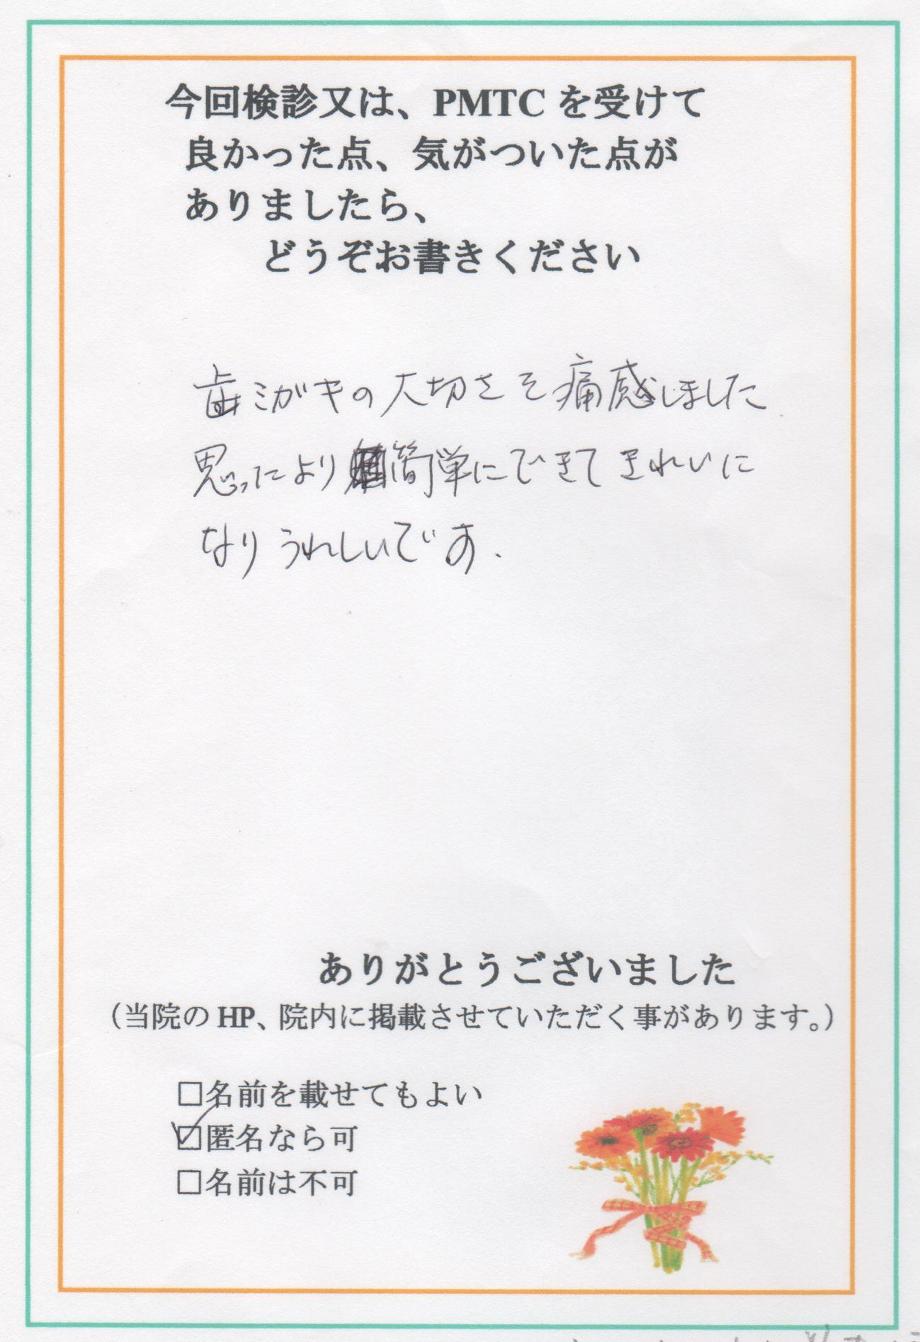 今回検診又は、PMTCを受けて
良かった点、気がついた点が
ありましたら、
どうぞお書きください
歯ミガキの大切さを痛感しました
思ったより簡単にできてきれいに
なりうれしいです.
ありがとうございました
（当院のHP、院内に掲載させていただく事があります。）
□名前を載せてもよい
☑匿名なら可
□名前は不可